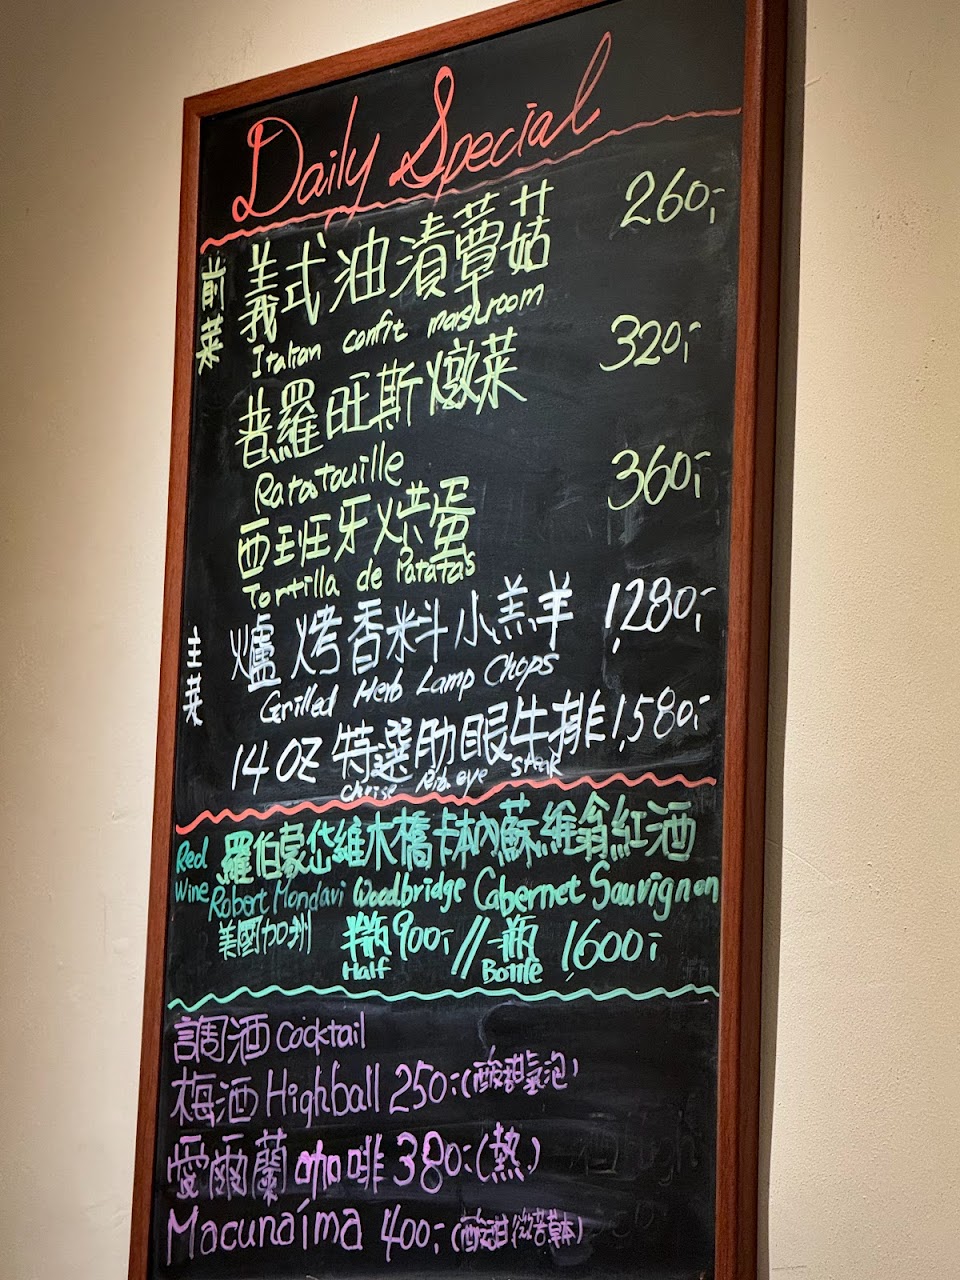 Daily Special
前菜
義式油漬蕈菇 260.-
Italian confit marshroom
普羅旺斯燉菜 320.-
Ratatouille
西班牙烘蛋 360.-
Tortilla de Patatas
主菜
爐烤香料小羔羊 1,280.-
Grilled Herb Lamp Chops
14 OZ 特選肋眼牛排 1,580.-
Rib eye steak
Red Wine
羅伯蒙岱維木橋卡本內蘇維翁紅酒
Robert Mondavi Woodbridge Cabernet Sauvignon
美國加州 半瓶 900.- // 一瓶 1,600.-
Half Bottle
調酒 Cocktail
梅酒 Highball 250.- (酸甜氣泡)
愛爾蘭咖啡 380.- (熱)
Macunaíma 400.- (酸甜微苦草本)